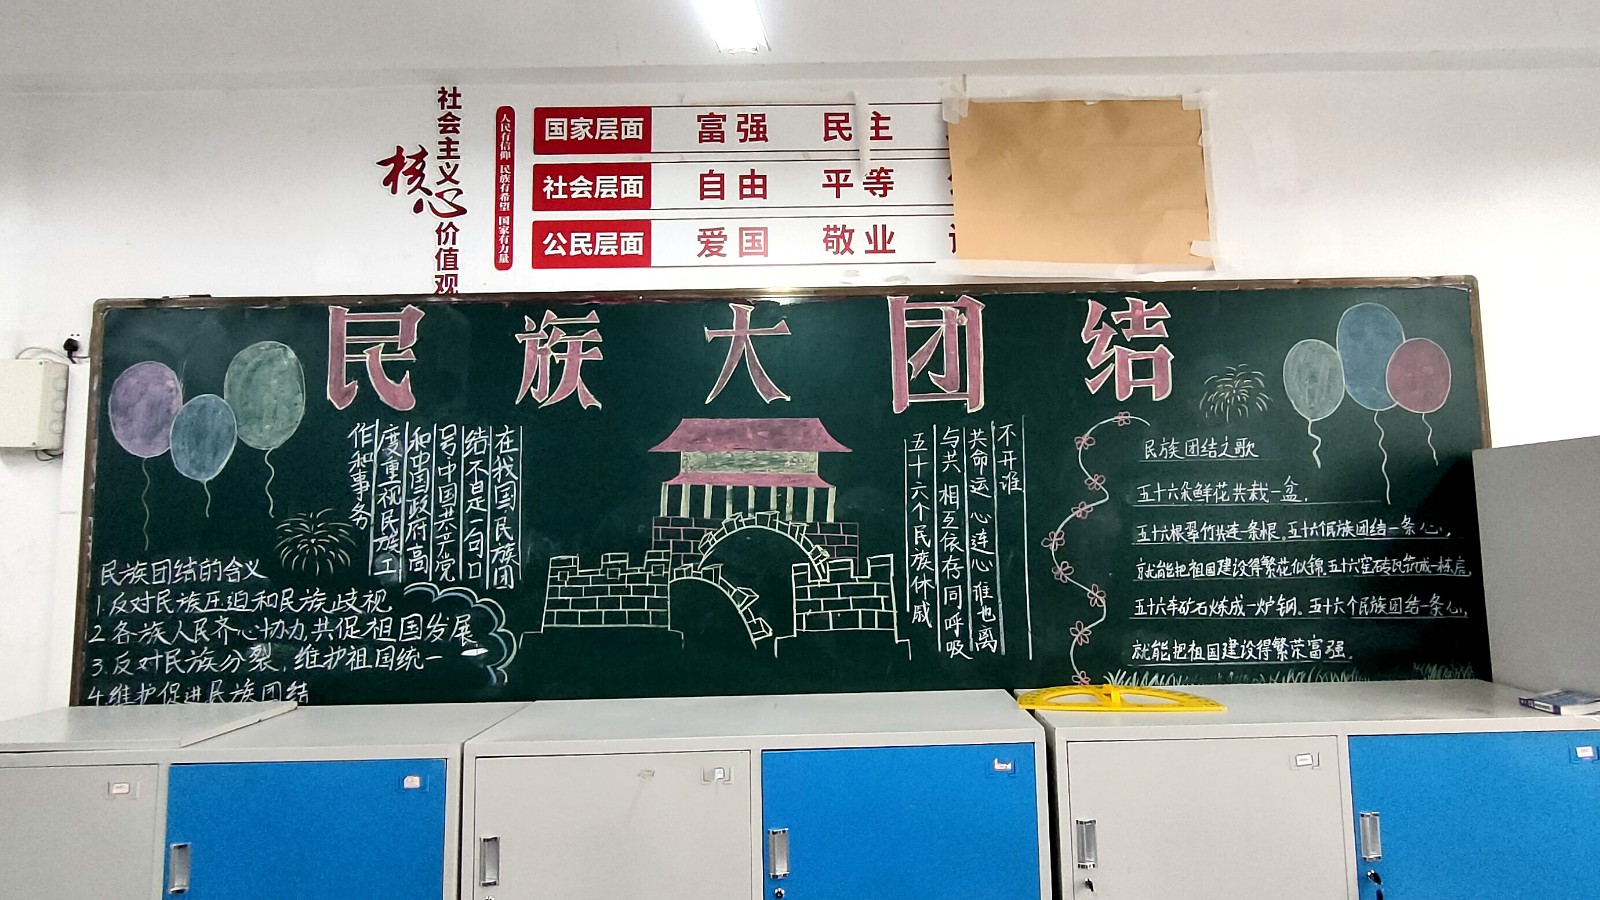 社会主义
核心
价值观
人民有信仰 民族有希望 国家有力量
国家层面 富强 民主
社会层面 自由 平等
公民层面 爱国 敬业
民族大团结
在我国民族团
结不是一句口
号中国共产党
和中国政府高
度重视民族工
作和事务
民族团结的含义
1.反对民族压迫和民族歧视
2.各族人民齐心协力,共促祖国发展
3.反对民族分裂,维护祖国统一
4.维护促进民族团结
不开谁
共命运 心连心 谁也离
与共 相互依存 同呼吸
五十六个民族休戚
民族团结之歌
五十六朵鲜花共栽一盆,
五十六根翠竹共连一条根,五十六个民族团结一条心,
就能把祖国建设得繁花似锦,五十六窑砖瓦筑成一栋房,
五十六车矿石炼成一炉钢。五十六个民族团结一条心,
就能把祖国建设得繁荣富强。